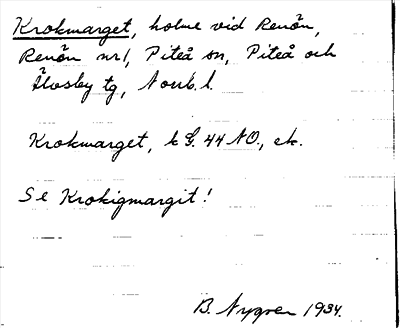 Krokmarget, holme vid Renön,
Renön nr 1, Piteå sn, Piteå och
Älvsby tg, Norrb. l.
Krokmarget, k G. 44 NO., ek.
Se Krokigmargit!
B. Nygren 1934.